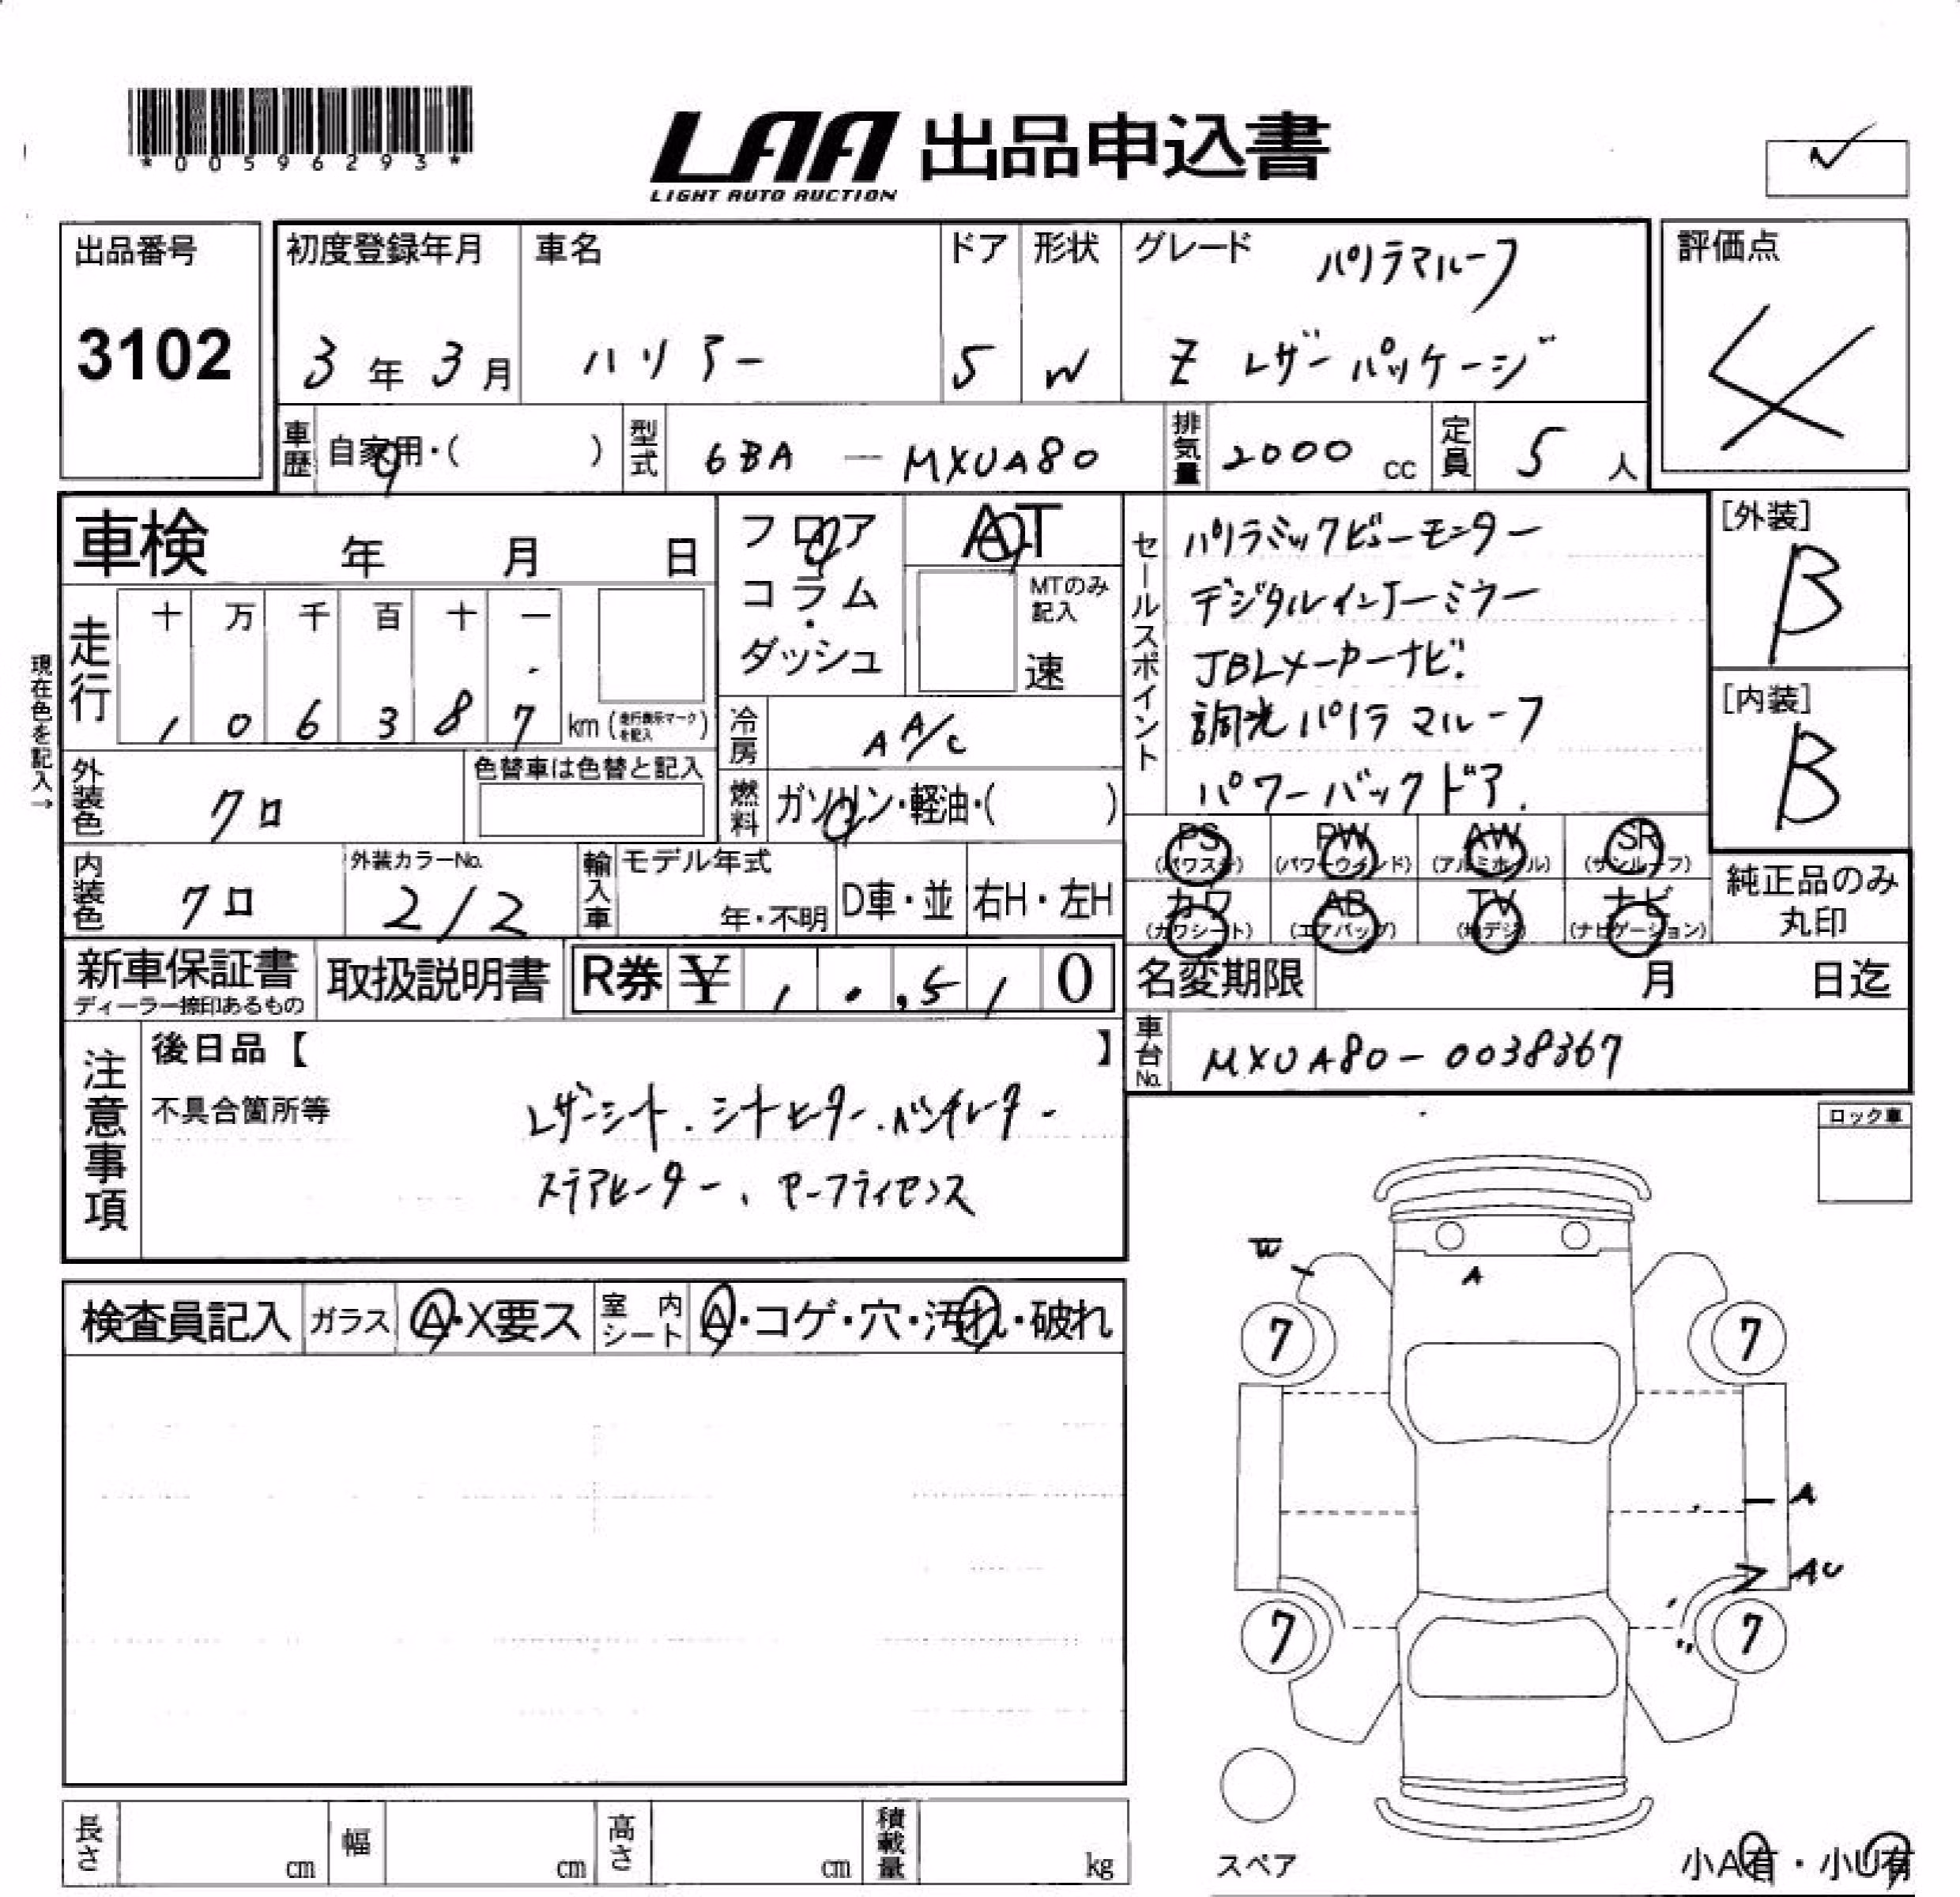 *00596293*
LAA 出品申込書
LIGHT AUTO AUCTION
出品番号
3102
初度登録年月
3年 3月
車名
ハリアー
ドア
5
形状
W
グレード
パノラマルーフ
Z レザーパッケージ
評価点
4
車歴 自家用・( )
型式 6BA - MXUA80
排気量 2000 cc
定員 5 人
車検 年 月 日
フロア
コラム
・
ダッシュ
AT
MTのみ
記入
速
現在色を記入→
走行
十 万 千 百 十 一
1 0 6 3 8 7 km (走行表示マークを記入)
冷房 AA/C
外装色 クロ
色替車は色替と記入
燃料 ガソリン・軽油・( )
内装色 クロ
外装カラーNo.
212
輸入車
モデル年式
年・不明
D車・並
右H・左H
セールスポイント
パノラミックビューモニター
デジタルインナーミラー
JBLメーカーナビ.
調光パノラマルーフ
パワーバックドア.
[外装]
B
[内装]
B
PS (パワステ)
PW (パワーウインド)
AW (アルミホイル)
SR (サンルーフ)
カワ (カワシート)
AB (エアバッグ)
TV (地デジ)
ナビ (ナビゲーション)
純正品のみ
丸印
新車保証書
ディーラー捺印あるもの
取扱説明書
R券 ¥ 1 0,5 1 0
名変期限 月 日迄
車台No. MXUA80-0038367
注意事項
後日品【 】
不具合箇所等
レザーシート.シートヒーター.ベンチレーター
ステアヒーター、セーフティセンス
ロック車
検査員記入
ガラス A・X要ス
室内シート A・コゲ・穴・汚れ・破れ
W
A
7
7
A
AU
7
7
スペア
小A有・小U有
長さ cm
幅 cm
高さ cm
積載量 kg